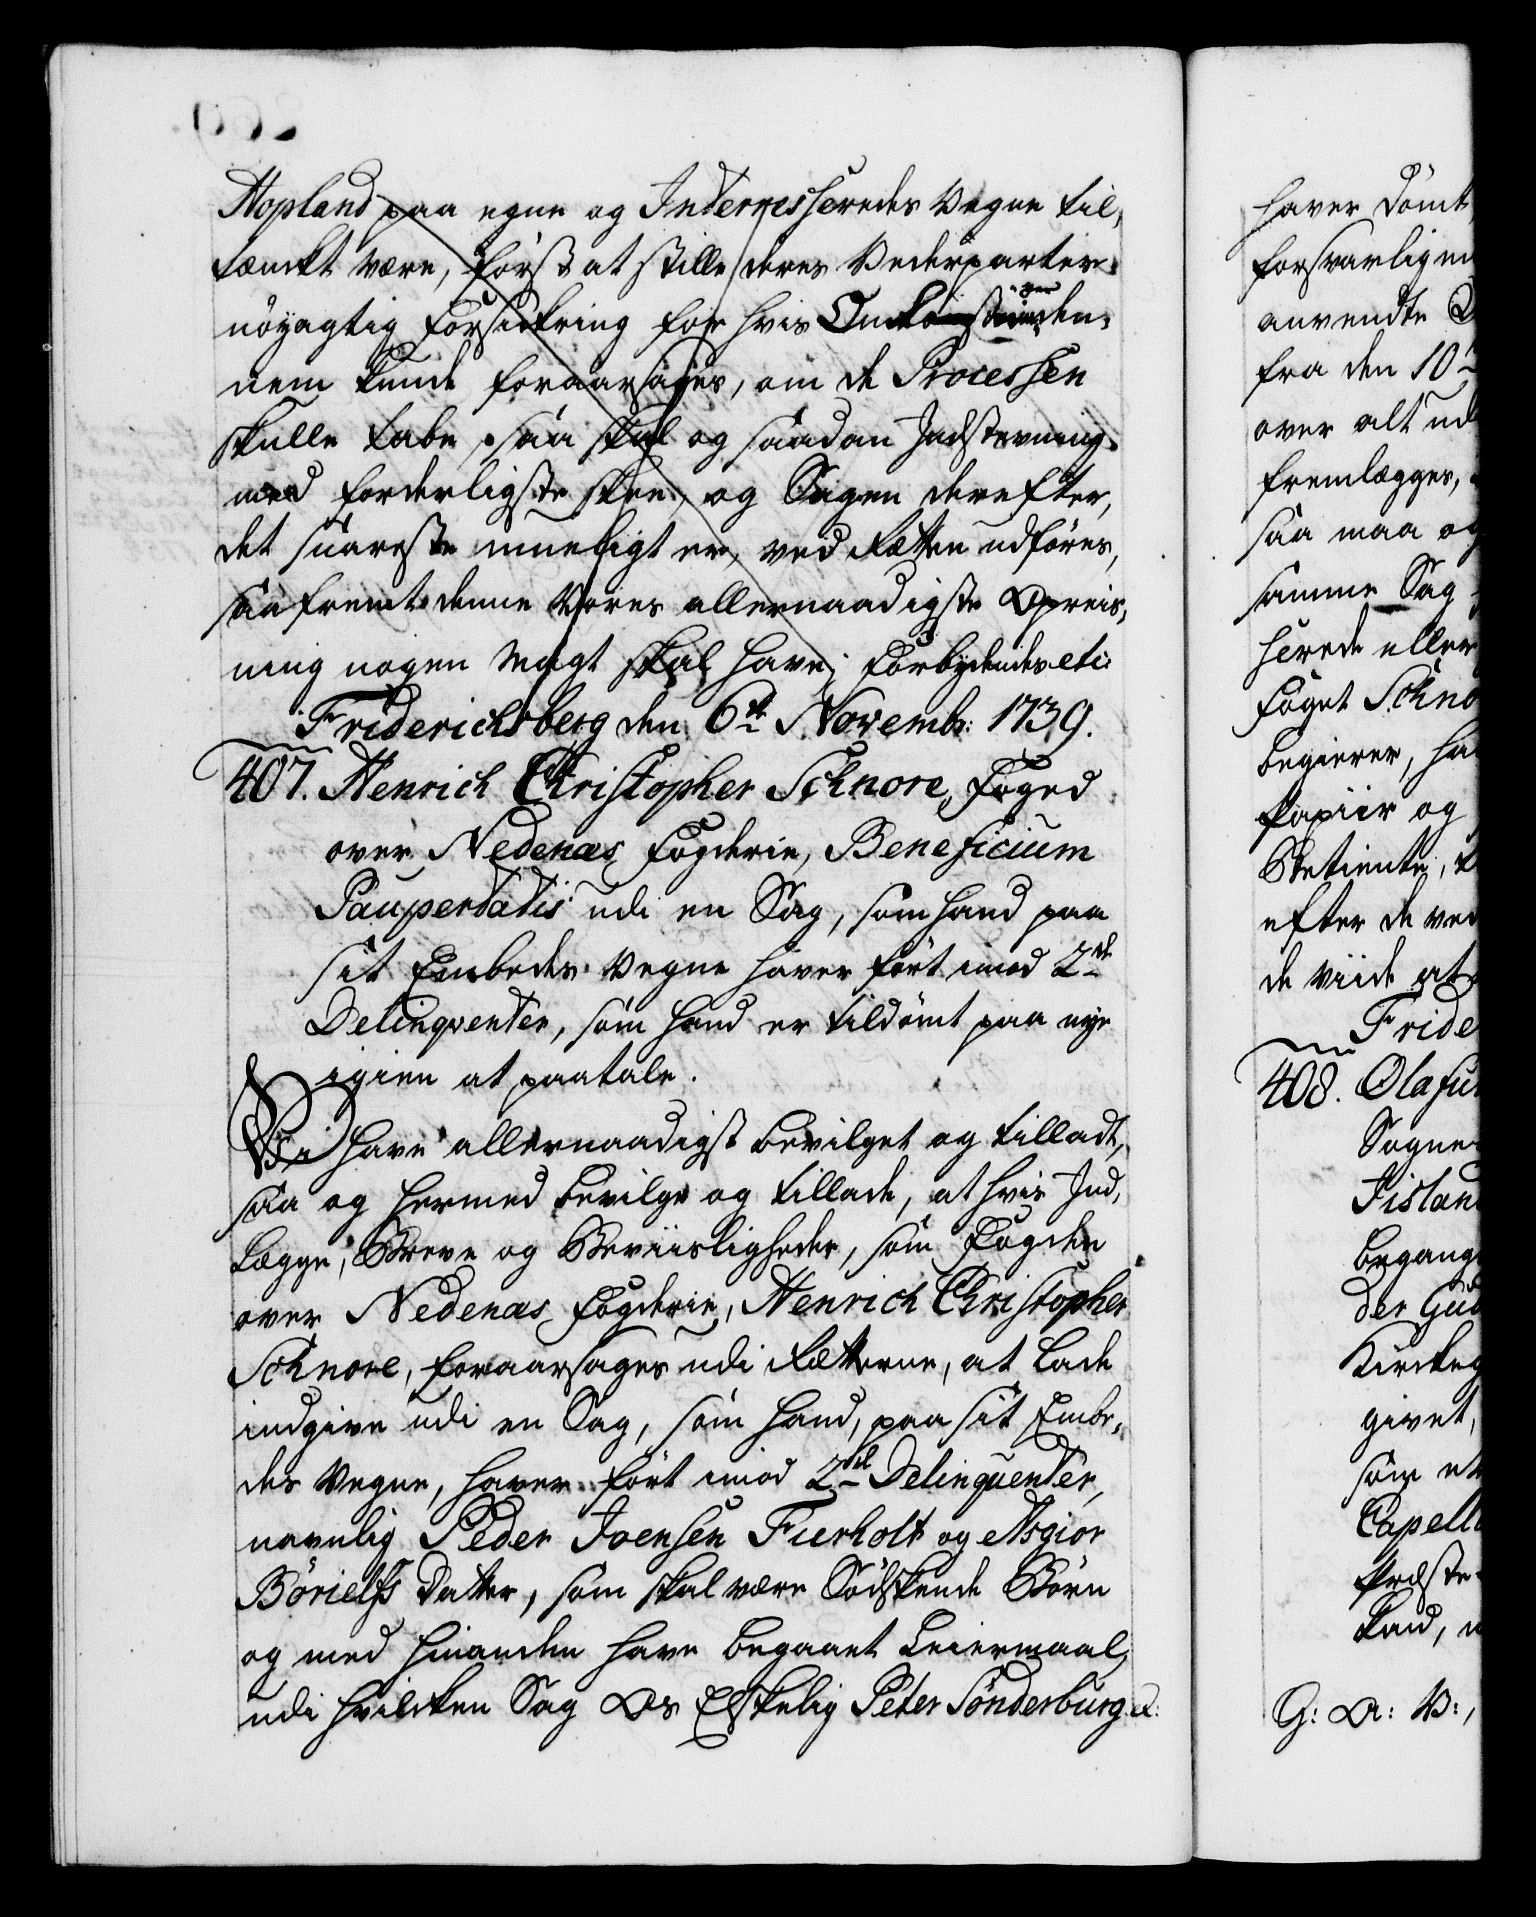 Hopland paa egne og Indernesherreds Vegne til,
tænckt være, først at stille deres Vederparter
nöyagtig Forsickring for hvis den,
nem kunde foraarsages, om de Processen
skulle tabe, saa skal og saadan Indstevning
med forderligste skee, og Sagen derefter,
det snareste mueligt er, ved Rætten udføres,
saafremt denne Vores allernaadigste Opreis,
ning nogen Magt skal have; Forbydendes etc:
Friderichsberg den 6te Novembr: 1739.
407. Henrich Christopher Schnore, Foged
over Nedenæs Fogderie, Beneficium
Paupertatis udi en Sag, som hand paa
sit Embeds Vegne haver ført imod 2de
Delinqventer, som hand er tildømt paa nye
igien at paatale.
Vi have allernaadigst bevilget og tilladt,
saa og hermed bevilge og tillade, at hvis Ind,
lægge, Breve og Beviisligheder, som Fogden
over Nedenæs Fogderie, Henrich Christopher
Schnore, foraarsages udi Rætterne, at lade
indgive udi en Sag, som hand, paa sit Embe,
des Vegne, haver ført imod 2de Delinquenter,
navnlig Peder Joensen Fuerholt og Asgior
Børielfs Datter, som skal være Södskende Børn
og med hinanden have begaaet Leiermaal,
udi hvilcken Sag Os Elskelig Peter Sönderburg
haver dömt
forsvarligen
anvendte
fra den 10
over alt ud
fremlægges,
saa maa og
samme Sag
herede eller
Foget Schno
begierer, ha
Papiir og
Betiente,
efter de ved
de viide at
Fride
408. Olafu
Sogne
Iislan
begang
der Gud
Kircke
givet,
som et
Capell
Præste
Land,
G: A: V:,